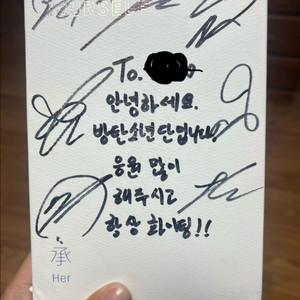 YOURSELF
To.
안녕하세요.
방탄소년단입니다.
응원 많이
해주시고
항상 화이팅!!
承
Her